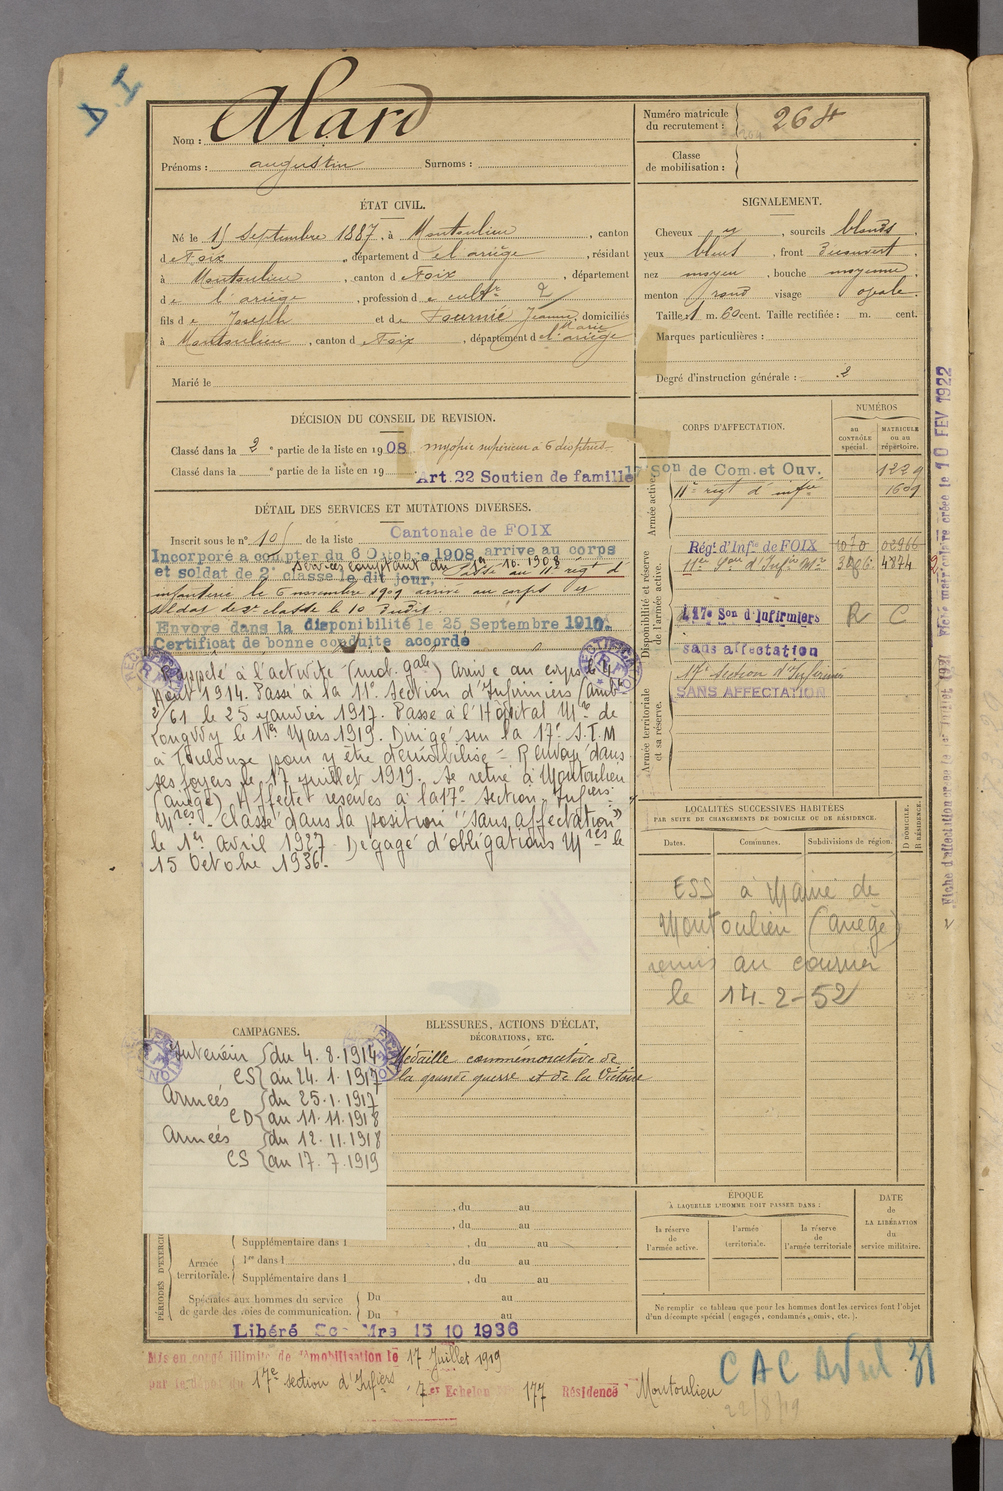 D I
Nom : Alard
Prénoms : augustin Surnoms :
Numéro matricule
du recrutement : 264
Classe
de mobilisation :
ÉTAT CIVIL.
Né le 15 Septembre 1887, à Montoulieu, canton
de Foix, département de l'ariège, résidant
à Montoulieu, canton de Foix, département
de l'ariège, profession de cultr
fils de Joseph et de Fournié Jeanne Marie, domiciliés
à Montoulieu, canton de Foix, département de l'ariège
Marié le
SIGNALEMENT.
Cheveux et, sourcils blonds,
yeux bleus, front découvert,
nez moyen, bouche moyenne,
menton rond visage ovale.
Taille : 1 m. 60 cent. Taille rectifiée : m. cent.
Marques particulières :
Degré d'instruction générale : 2
DÉCISION DU CONSEIL DE REVISION.
Classé dans la 2e partie de la liste en 1908 myopie supérieur à 6 dioptries
Classé dans la e partie de la liste en 19
Art. 22 Soutien de famille
DÉTAIL DES SERVICES ET MUTATIONS DIVERSES.
Inscrit sous le n° 105 de la liste Cantonale de FOIX
Incorporé a compter du 6 Octobre 1908, arrive au corps
Services comptant du 1er 10. 1908
et soldat de 2e classe le dit jour, Passé au 11e régt d'
infanterie le 6 novembre 1909 arrivé au corps et
soldat de 2e classe le 10 dudit.
Envoye dans la disponibilité le 25 Septembre 1910.
Certificat de bonne conduite accordé
Rappelé à l'activité (mob. gale) Arrivé au corps le 4
Août 1914. Passé à la 11e Section d'Infirmiers (Amb.
2/61 le 25 janvier 1917. Passe à l'Hôpital Mre de
Longwy le 1er Mars 1919. Dirigé sur la 17e S.I.M
à Toulouse pour y être démobilisé - Renvoyé dans
ses foyers le 17 juillet 1919. Se retire à Montoulieu
(ariège) Affecté réserves à la 17e Section Infiers
Mres. Classé dans la position "sans affectation"
le 1er Avril 1927. Dégagé d'obligations Mres le
15 Octobre 1936.
CORPS D'AFFECTATION.
NUMÉROS
au
CONTRÔLE
spécial.
MATRICULE
ou au
répertoire.
Armée active.
17e Son de Com. et Ouv. 1229
11e régt d'infie 1609
Disponibilité et réserve
de l'armée active.
Régt d'Infie de FOIX 1070 02966
11e Son d'Infiers Mres 4874
17e Son d'Infirmiers R C
sans affectation
Armée territoriale
et sa réserve.
17e Section d'Infirmiers
SANS AFFECTATION
LOCALITÉS SUCCESSIVES HABITÉES
PAR SUITE DE CHANGEMENTS DE DOMICILE OU DE RÉSIDENCE.
Dates. Communes. Subdivisions de région. D DOMICILE. R RÉSIDENCE.
ESS à Mairie de
Montoulieu (ariège)
remis au courrier
le 14-2-52
CAMPAGNES.
Intérieur du 4.8.1914
CS au 24.1.1917
Armées du 25.1.1917
CD au 11.11.1918
Armées du 12.11.1918
CS au 17.7.1919
BLESSURES, ACTIONS D'ÉCLAT,
DÉCORATIONS, ETC.
Médaille commémorative de
la grande guerre et de la Victoire
PÉRIODES D'EXERCICES
, du au
, du au
Supplémentaire dans l , du au
Armée
territoriale.
1re dans l , du au
Supplémentaire dans l , du au
Spéciales aux hommes du service
de garde des voies de communication.
Du au
Du au
ÉPOQUE
À LAQUELLE L'HOMME DOIT PASSER DANS :
la réserve
de
l'armée active.
l'armée
territoriale.
la réserve
de
l'armée territoriale
DATE
de
LA LIBÉRATION
du
service militaire.
Ne remplir ce tableau que pour les hommes dont les services font l'objet
d'un décompte spécial (engagés, condamnés, omis, etc.).
Libéré Sce Mre 15 10 1936
Mis en congé illimité de démobilisation le 17 Juillet 1919
par le dépôt du 17e section d'Infiers 7er Echelon 177 Résidence Montoulieu
CAC Avril 31
22/8/19
Fiche d'affectation créée le 1er Juillet 1921 Fiche matriculaire créée le 10 FEV 1922